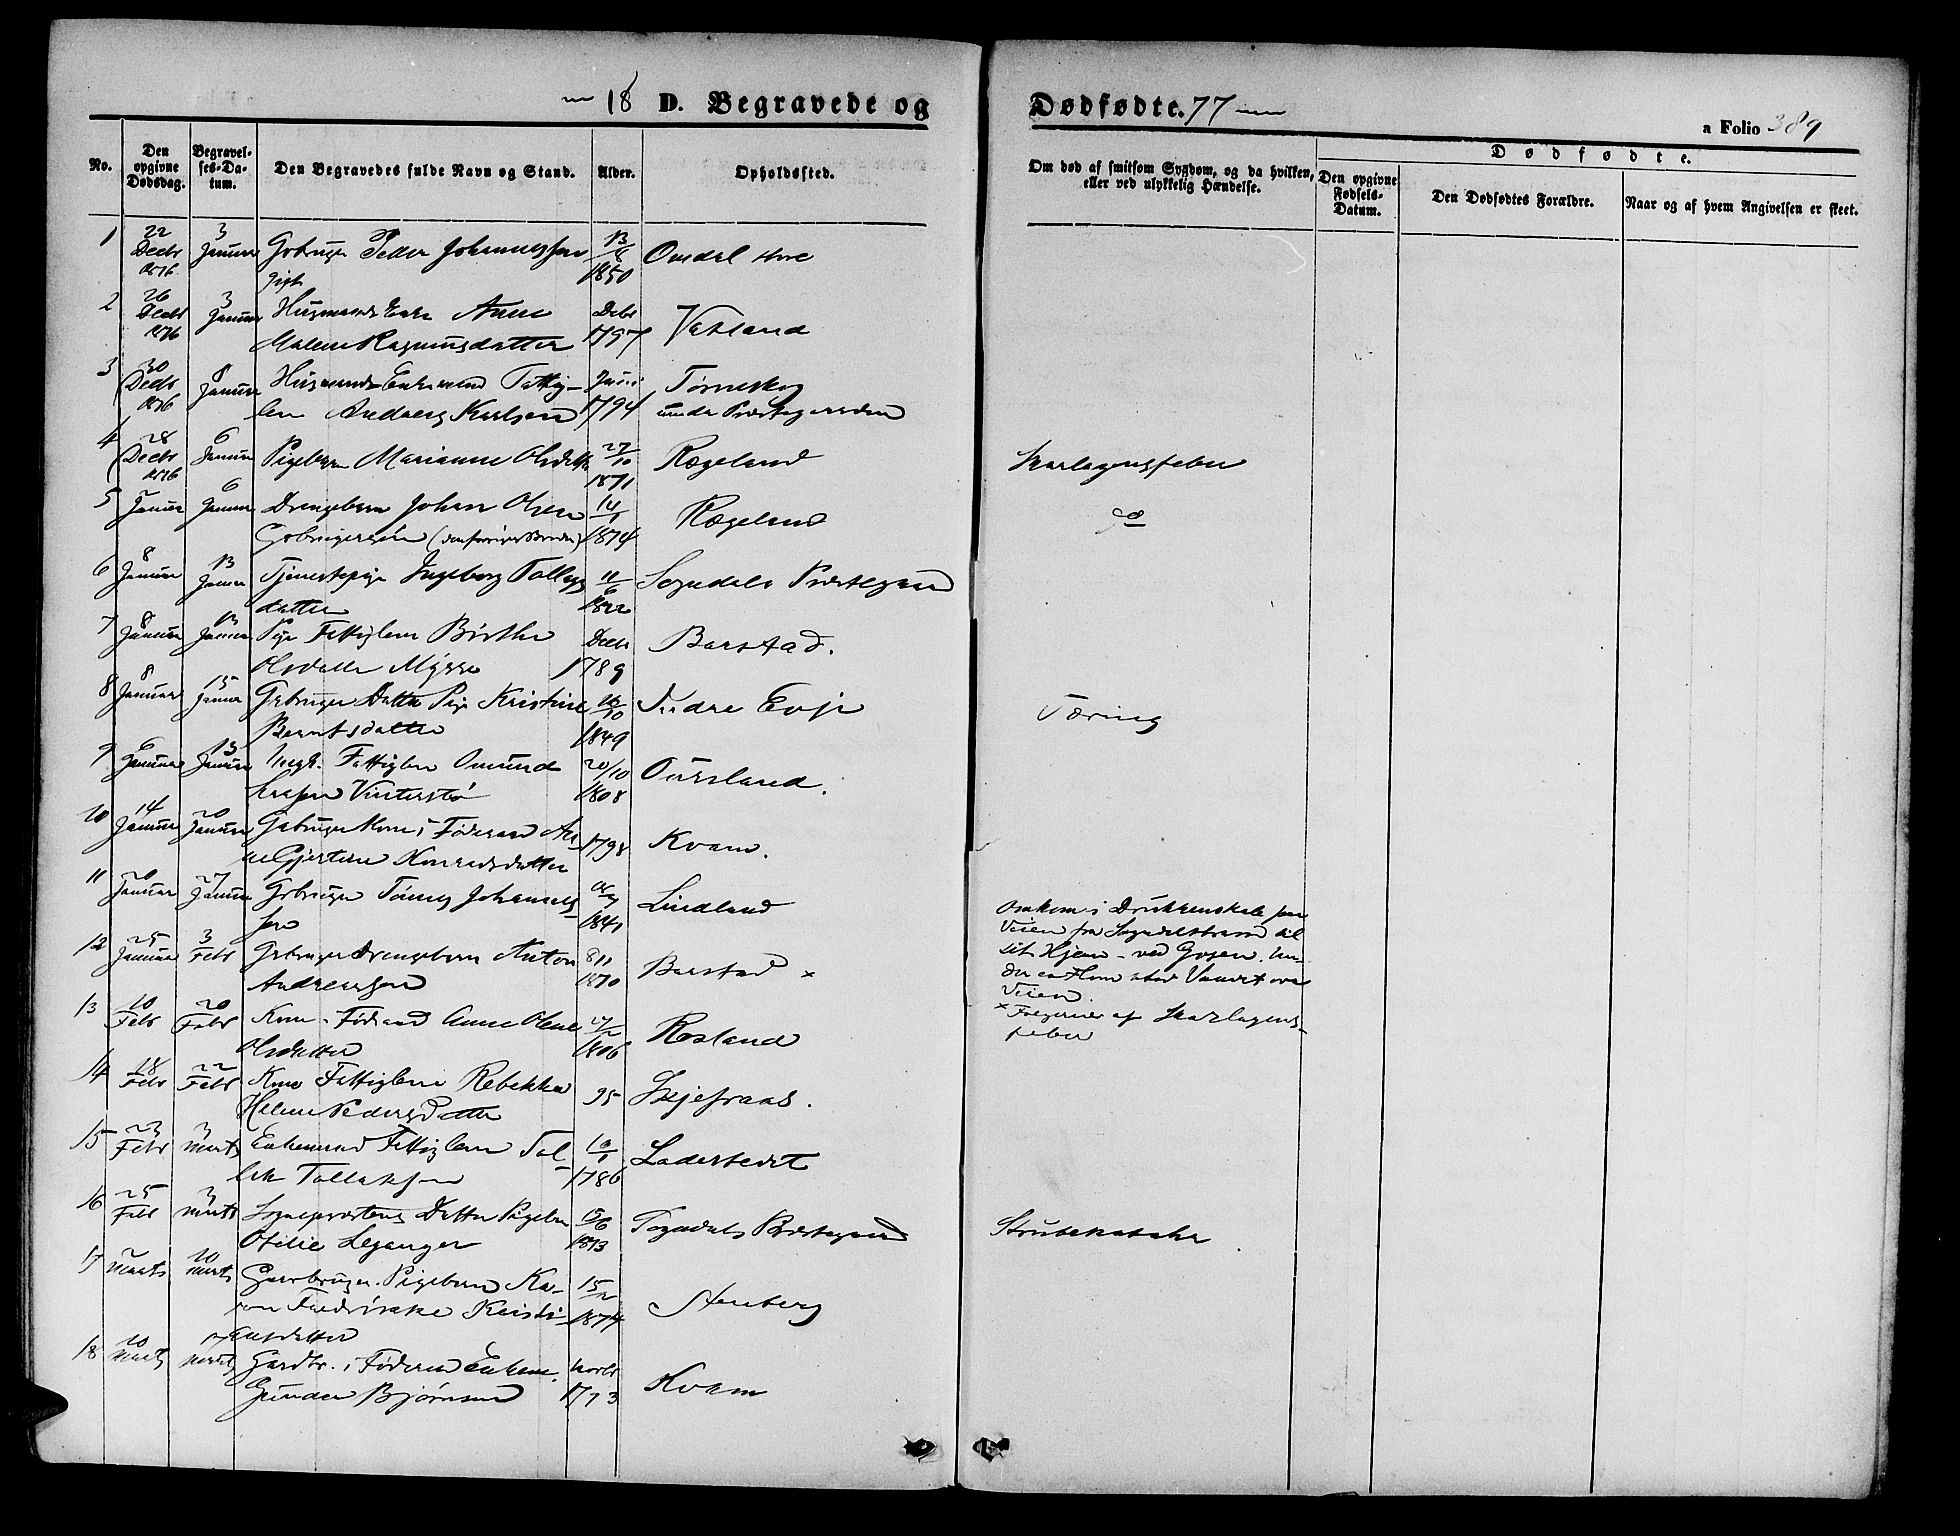 18 D. Begravede og Dødfødte. 77
a Folio 389
No. Den opgivne Dødsdag. Begravelses-Datum. Den Begravedes fulde Navn og Stand. Alder. Opholdssted.
Om død af smitsom Sygdom, og da hvilken, eller ved ulykkelig Hændelse.
Dødfødte.
Den opgivne Fødsels-Datum. Den Dødfødtes Forældre. Naar og af hvem Angivelsen er skeet.
1 22 Decbr 1876 3 Januar Gbruger Peder Johannessen gift 1850 Omdal
2 26 Decbr 1876 3 Januar Husmands Enke Anne
Malene Rasmusdatter Debr 1797 Vatland
3 30 Decbr 1876 8 Januar Husmand Enkemand Fattig-
lem Andreas Karlsen Juni 1794 Tørneskog
under Præstegaarden
4 28 Decbr 1876 6 Januar Pigebarn Marianne Olsdatter 27/10 1871 Rægeland Skarlagensfeber
5 2 Januar 6 Januar Drengebarn Johan Olsen
Gbrugersøn 14/1 1874 Rægeland do
6 8 Januar 13 Januar Tjenestepige Ingeborg Tollags
datter 11/6 Sogndals Præstegaard
7 8 Januar 13 Januar Pige Fattiglem Birthe
Olsdatter Mysse Decbr 1789 Barstad.
8 8 Januar 15 Januar Gbruger Datter Pige Kristine
Berntsdatter 1849 Indre Evje Tæring
9 6 Januar 13 Januar Ungk. Fattiglem Omund
Larsen Vinterstø 20/10 1808 Oursland.
10 14 Januar 20 Januar Gbruger Kone i Føderaad An-
ne Gjertine Konradsdatter 1798 Kvam.
11 20 Januar 27 Januar Gbruger Tønnes Johannes-
sen 1841 Lindland
Omkom i Drukkenskab paa
Veien fra Sogndalstrand til
sit Hjem - ved Gysen, un-
der en Flom stod Vandet over
Veien.
12 25 Januar 3 Febr Gbruger Drengebarn Anton
Andreassen 8/11 1870 Barstad x
x Følgerne af Skarlagens-
feber
13 10 Febr 20 Febr Kone i Føderaad Anne Olene
Olsdatter 1806 Røsland
14 18 Febr 22 Febr Kone Fattiglem Rebekka
Helene Pedersdatter 95 Skjefraas.
15 23 Febr 3 Marts Enkemand Fattiglem Tol-
lak Tollaksen 10/1 1786 Ladestedet
16 25 Febr 3 Marts Sognepræstens Datter Pigebarn
Otilie Leganger 1873 Sogndals Præstegaard Strubekatahr
17 2 Marts 10 Marts Gaardbruger. Pigebarn Ka-
ren Fredrikke Kristi-
ensdatter 15/2 1874 Stenberg
18 10 Marts 17 Marts Gardbr. i Føderaad Enkem.
Gunder Bjørnsen Novbr 1793 Kvam